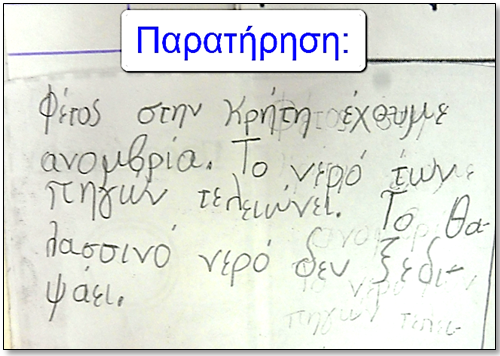 Παρατήρηση:
Φέτος στην Κρήτη έχουμε
ανομβρία. Το νερό των
πηγών τελειώνει. Το θα-
λασσινό νερό δεν ξεδι-
ψάει.